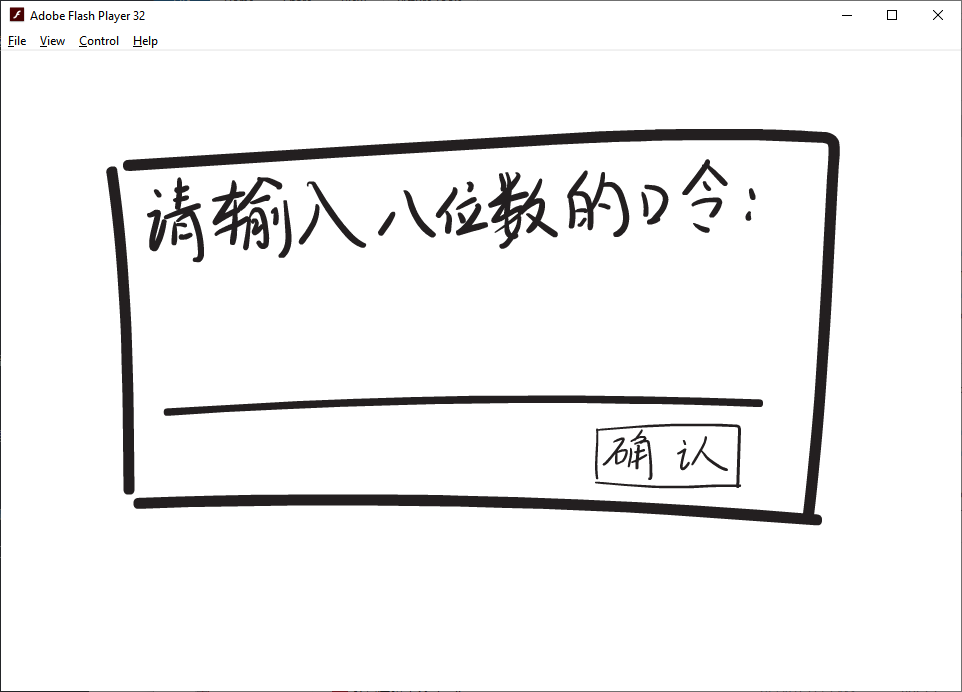 Adobe Flash Player 32
File View Control Help
请输入八位数的口令:
确认